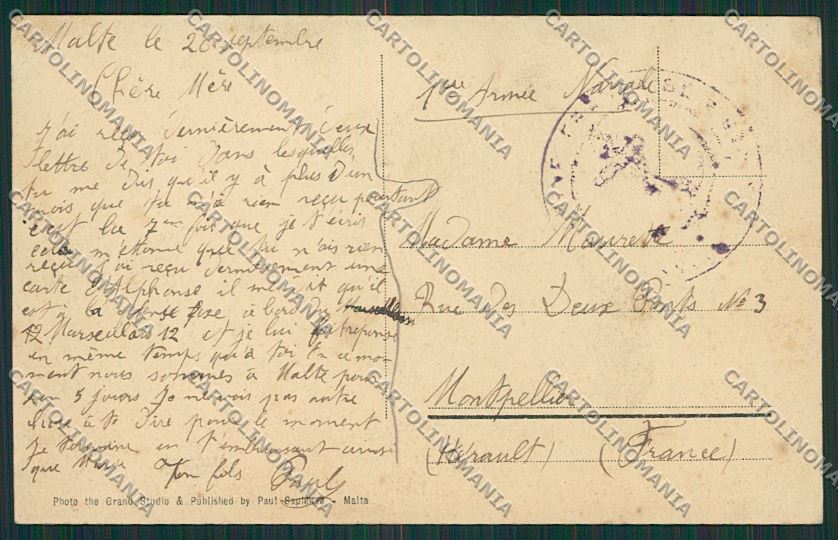 Malte le 26 septembre
Chère Mère
J'ai reçu dernièrement deux
lettre de toi dans lesquelles
tu me dis qu'il y à plus d'un
mois que tu n'a rien reçu pourtant
c'est la 7me fois que je t'écris
cela m'étonne que tu n'ais rien
reçu J'ai reçu dernièrement une
carte d'Alphonse il me dit qu'il
est à la défense fixe, à bord du
12 Marseillais 12 et je lui fait reponse
en même temps qu'à toi En ce mo-
ment nous sommes à Malte pour
5 jours Je ne vois pas autre
chose à te dire pour le moment
Je termine en t'embrassant ainsi
que
Ton fils Paul
Photo the Grand Studio & Published by Paul Sapienza - Malta
1ère Armée Navale
Madame Maurette
Rue des Deux Ponts No 3
Montpellier
(Hérault) (France)
CARTOLINOMANIA